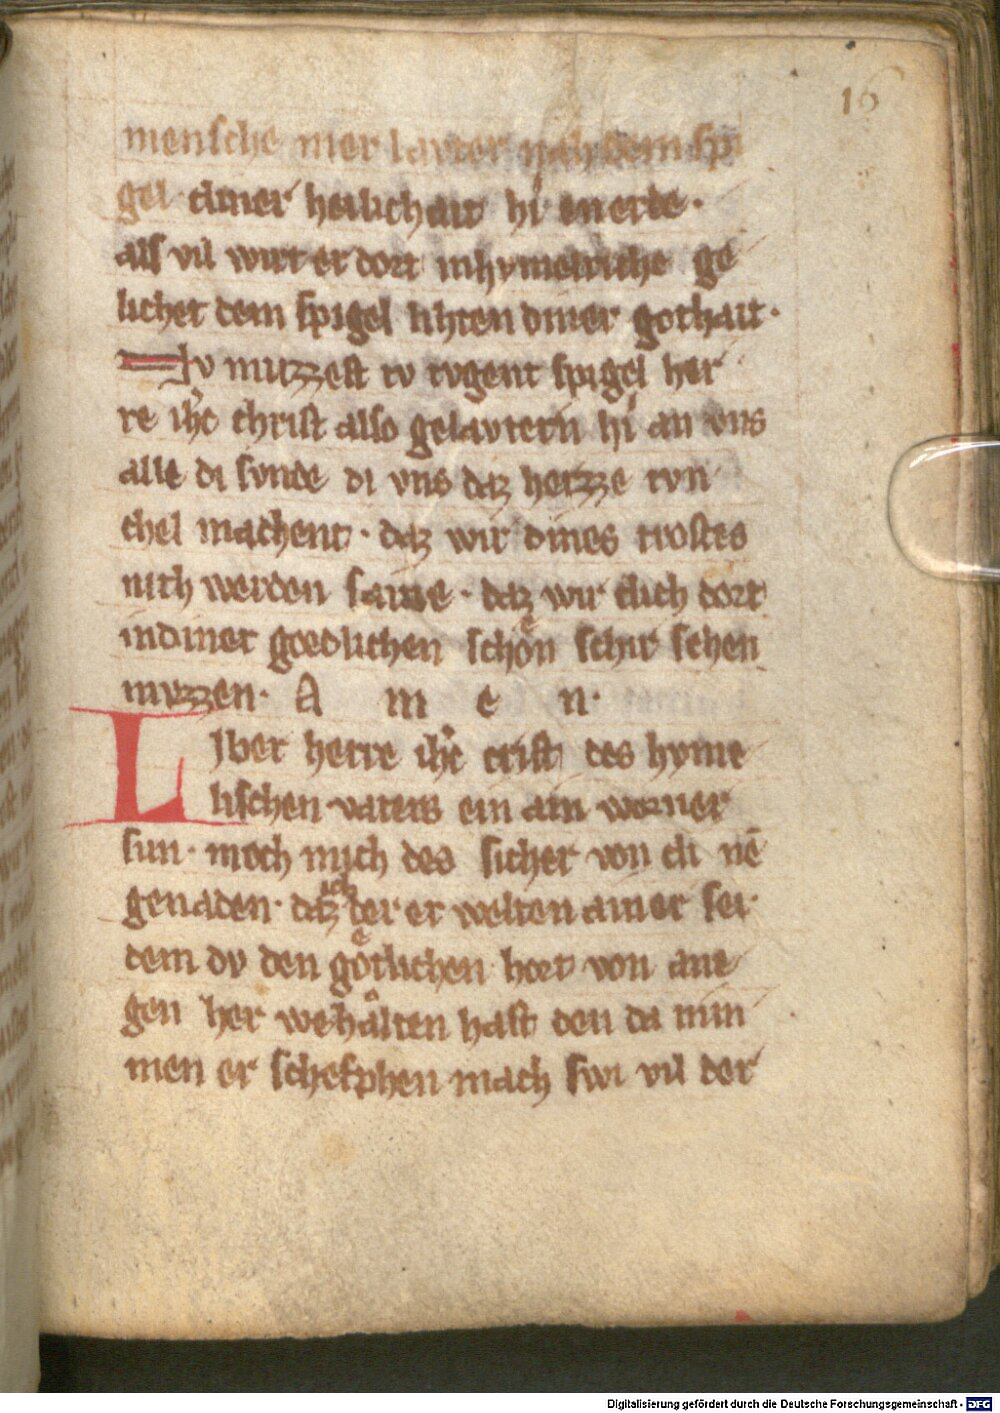 16
mensche mer lavter nah dem spi
gel diner heilichait hi en erde ·
als vil wirt er dort in hymelriche ge
lichet dem spigel lihten diner gothait ·
Nv muzzest tv tvgent spigel her
re ihc christ also gelavtern hi an vns
alle di svnde di vns daz hertzze tvn
chel machent · daz wir dines trostes
nith werden saine · daz wir dich dort
in diner goedlichen schoͤn schir sehen
mvzzen · A m e n ·
LIber herre ihc crist des hyme
lischen vaters ein ain worner
sun · mach mich des sicher von di nē
genaden · daz ich der er welten ainer sei ·
dem dv den goͤtlichen hort von ane
gen her wehalten hast den da nim
men er schefphen mach swi vil der
Digitalisierung gefördert durch die Deutsche Forschungsgemeinschaft - DFG